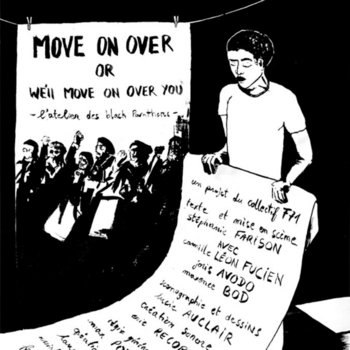 MOVE ON OVER
OR
WE'll MOVE ON OVER YOU
- l'atelier des black Panthers -
un projet du collectif F71
texte et mise en scène
stéphanie FARISON
AVEC
camille LÉON FUCIEN
joris AVODO
maxence BOD
scénographie et dessins
lucie AUCLAIR
création sonore
éric RECOR
régie générale
max PO